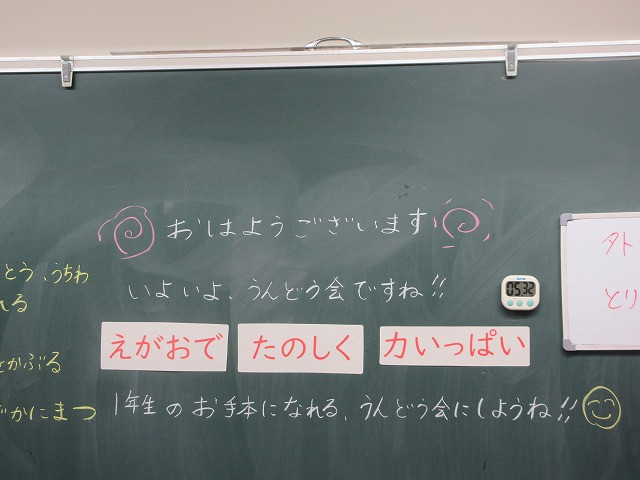 おはようございます
いよいよ、うんどう会ですね!!
えがおで たのしく 力いっぱい
1年生のお手本になれる、うんどう会にしようね!!
とう、うちわ
れる
かぶる
かにまつ
とり